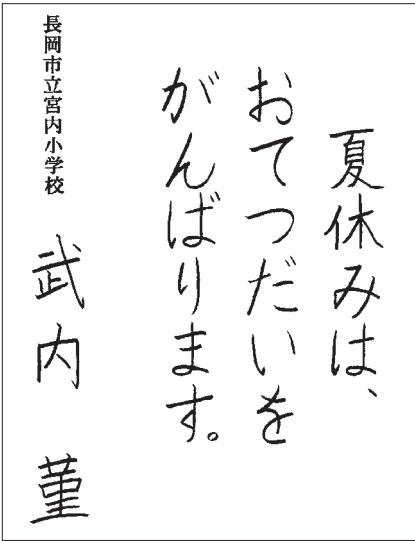 夏休みは、
おてつだいを
がんばります。
長岡市立宮内小学校
武内 菫